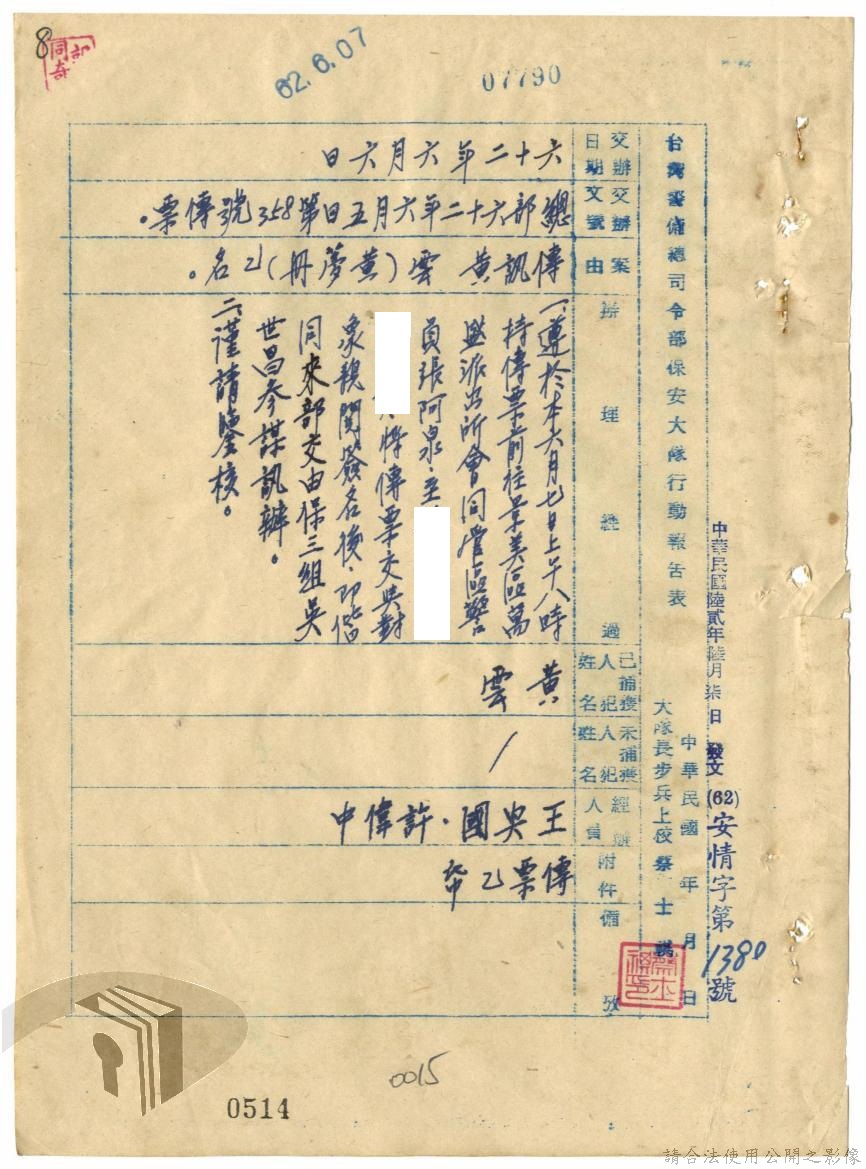 8
62.6.07
07790
中華民國陸貳年陸月柒日 發文 (62)安情字第1380號
台灣警備總司令部保安大隊行動報告表
中華民國 年 月 日
大隊長步兵上校蔡士
交辦日期
六十二年六月六日
交辦文號
總部六十二年六月五日第358號傳票。
案由
傳訊黃雲(黃夢冊)乙名。
辦理經過
一、遵於本六月七日上午八時
持傳票前往景美區萬
盛派出所會同管區警
員張阿泉、至
將傳票交其對
象親閱簽名後、即偕
同來部交由保三組吳
世昌參謀訊辦。
二、謹請鑒核。
已捕獲人犯姓名
黃雲
未捕獲人犯姓名
/
經辦人員
王興國、許偉中
附件
傳票乙
備攷
0015
0514
請合法使用公開之影像